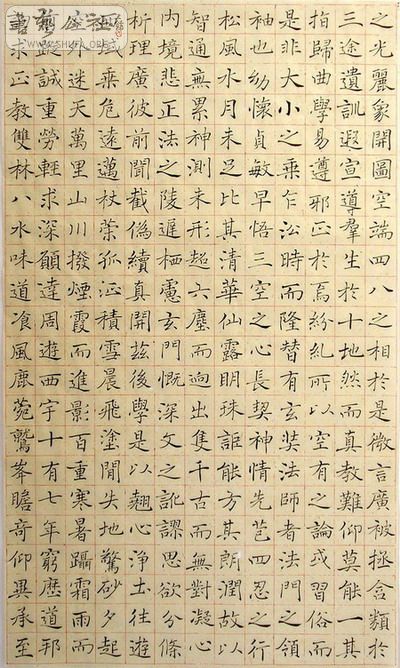 之光麗象開圖空端四八之相於是微言廣被拯含類於
三途遺訓遐宣導羣生於十地然而真教難仰莫能一其
指歸曲學易遵邪正於焉紛糺所以空有之論或習俗而
是非大小之乘乍沿時而隆替有玄奘法師者法門之領
神也幼懷貞敏早悟三空之心長契神情先苞四忍之行
松風水月未足比其清華仙露明珠詎能方其朗潤故以
智通無累神測未形超六塵而迥出隻千古而無對凝心
內境悲正法之陵遲栖慮玄門慨深文之訛謬思欲分條
析理廣彼前聞截偽續真開茲後學是以翹心淨土往遊
域乘危遠邁杖策孤征積雪晨飛塗閒失地驚砂夕起
外迷天萬里山川撥煙霞而進影百重寒暑躡霜雨而
誠重勞輕求深願達周遊西宇十有七年窮歷道邦
求正教雙林八水味道飡風鹿菀鷲峯瞻奇仰異承至